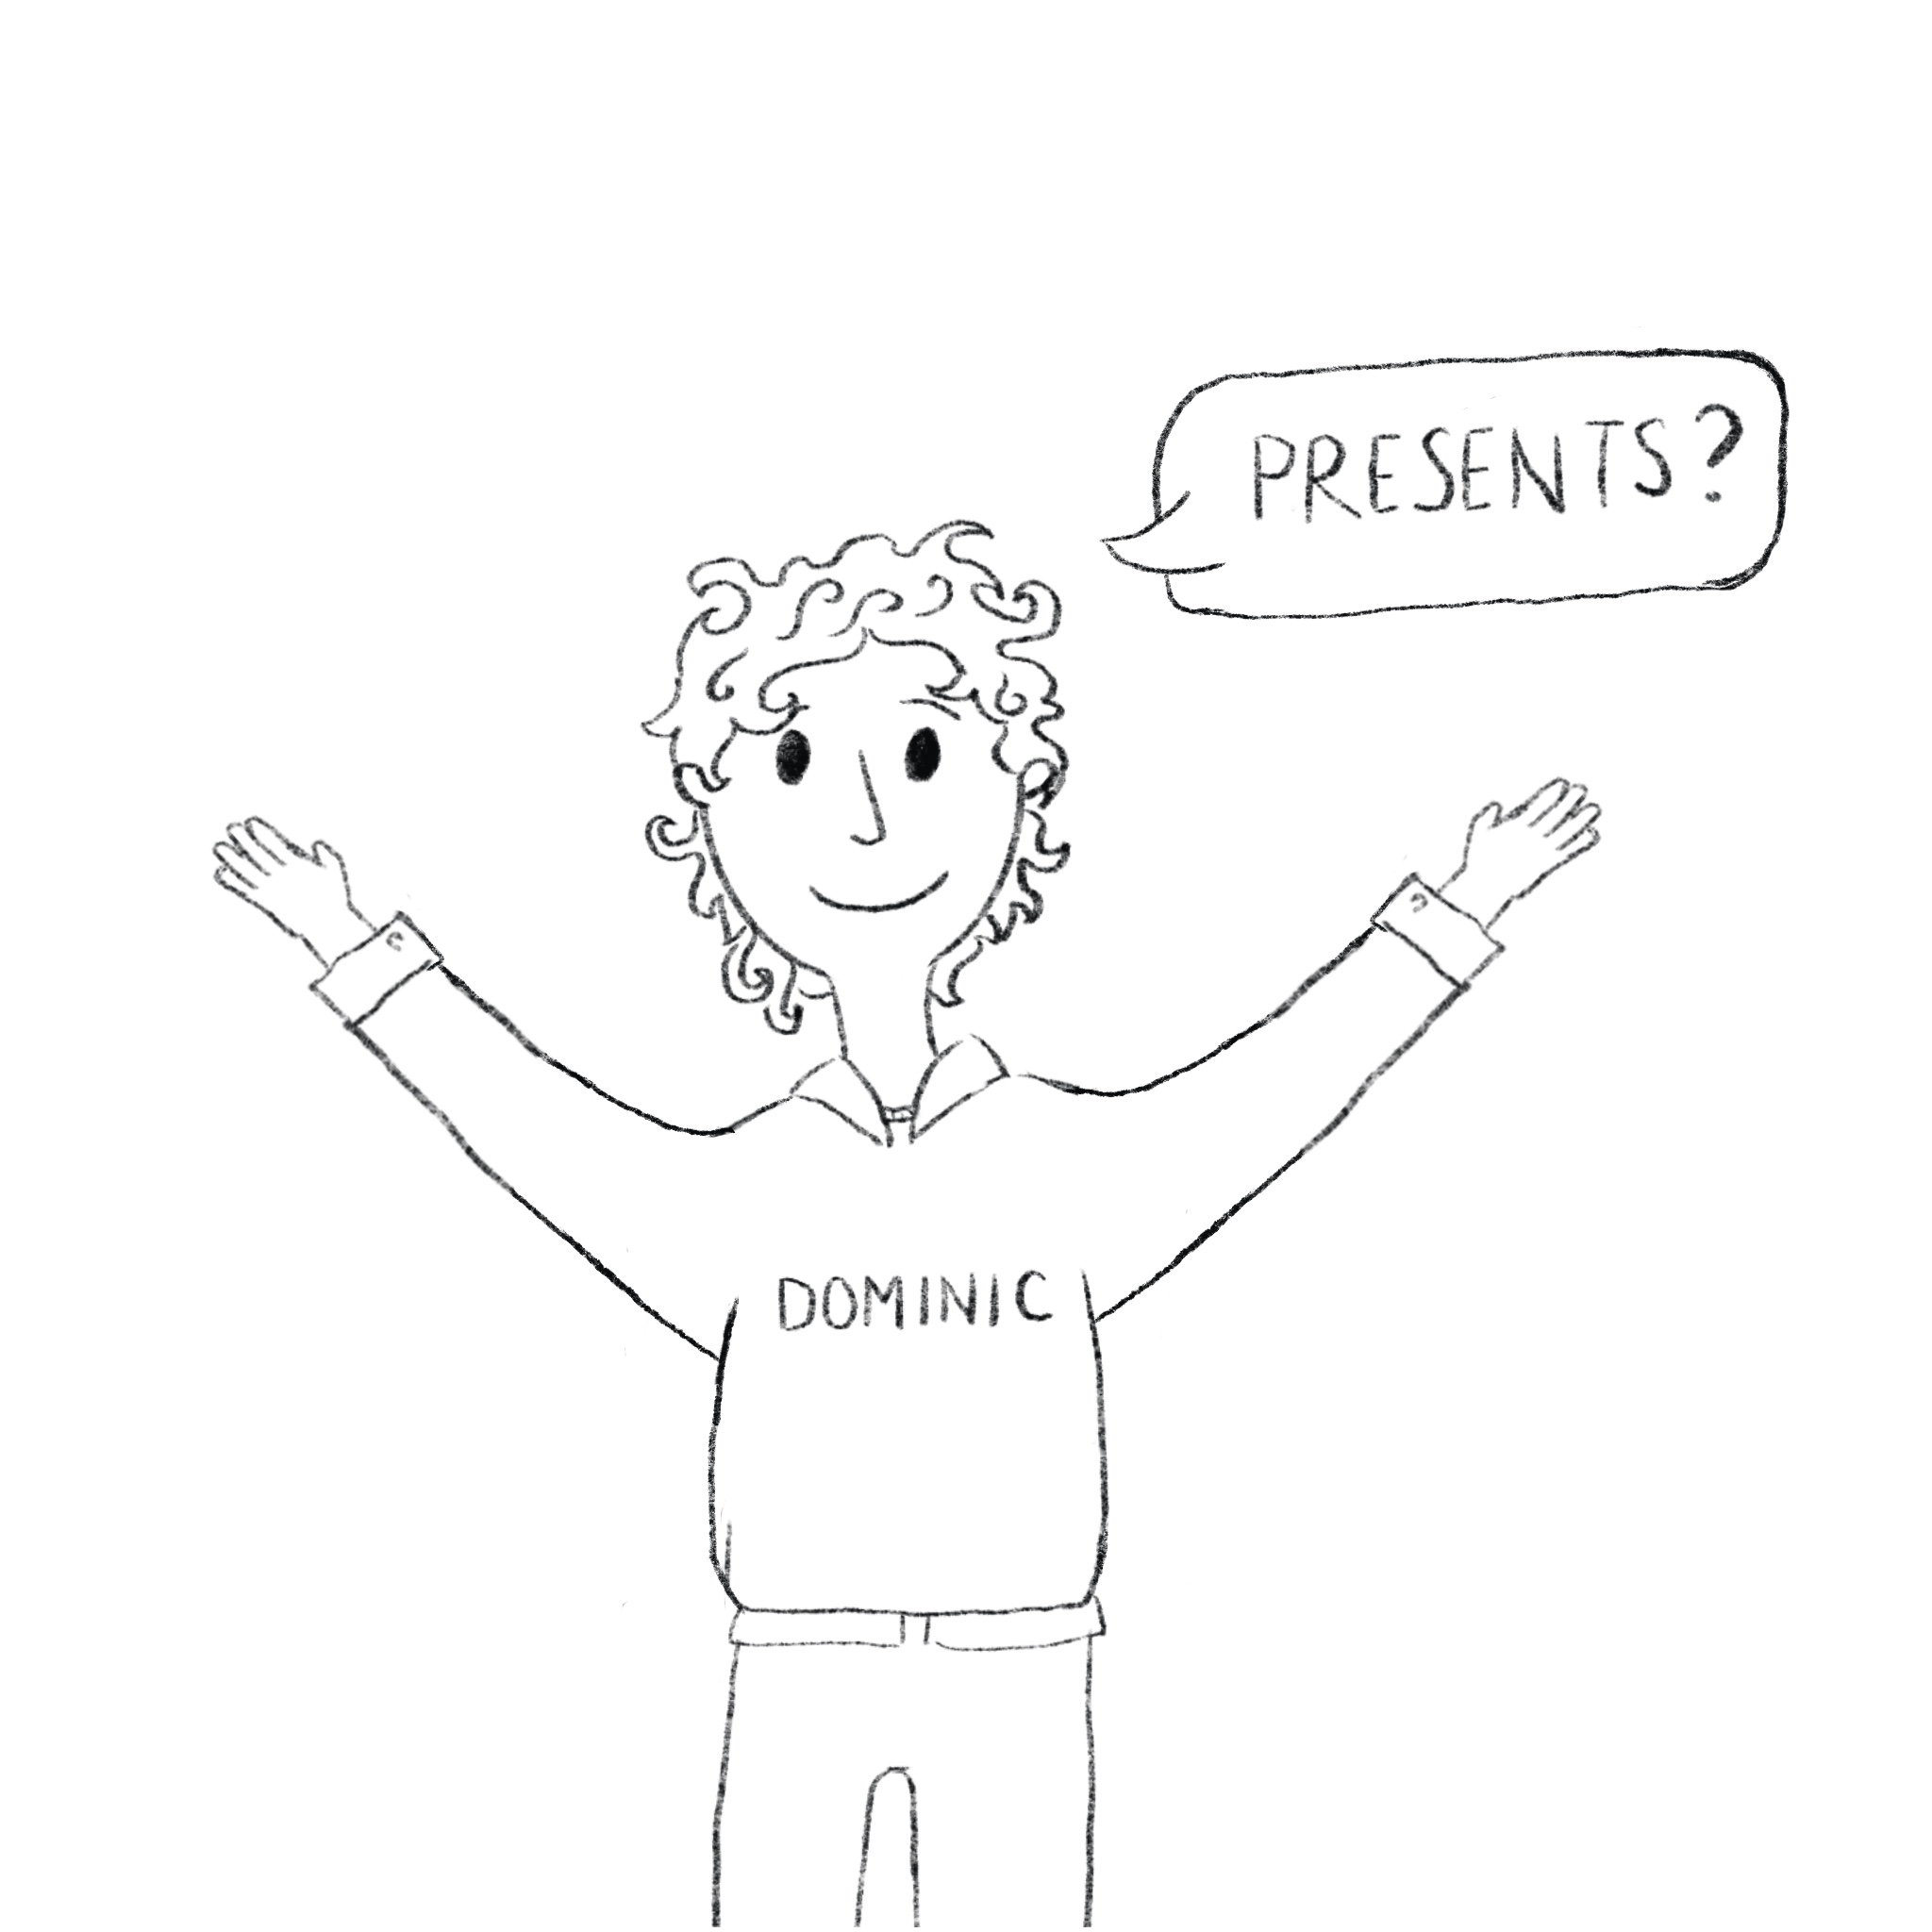 PRESENTS?
DOMINIC